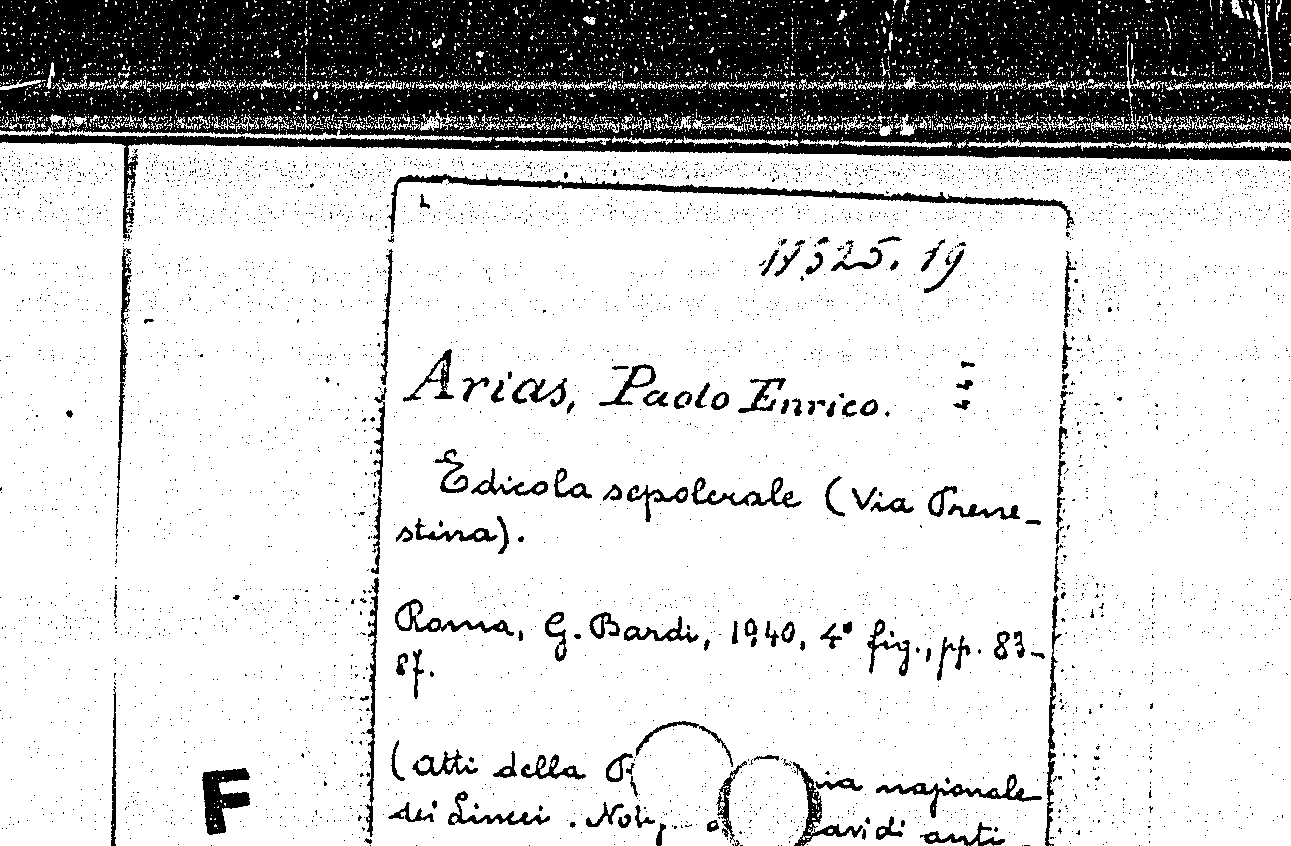 11325.19
Arias, Paolo Enrico.
Edicola sepolcrale (Via Prene-
stina).
Roma, G. Bardi, 1940, 4° fig., pp. 83-
87.
(Atti della nazionale
dei Lincei . di anti
F